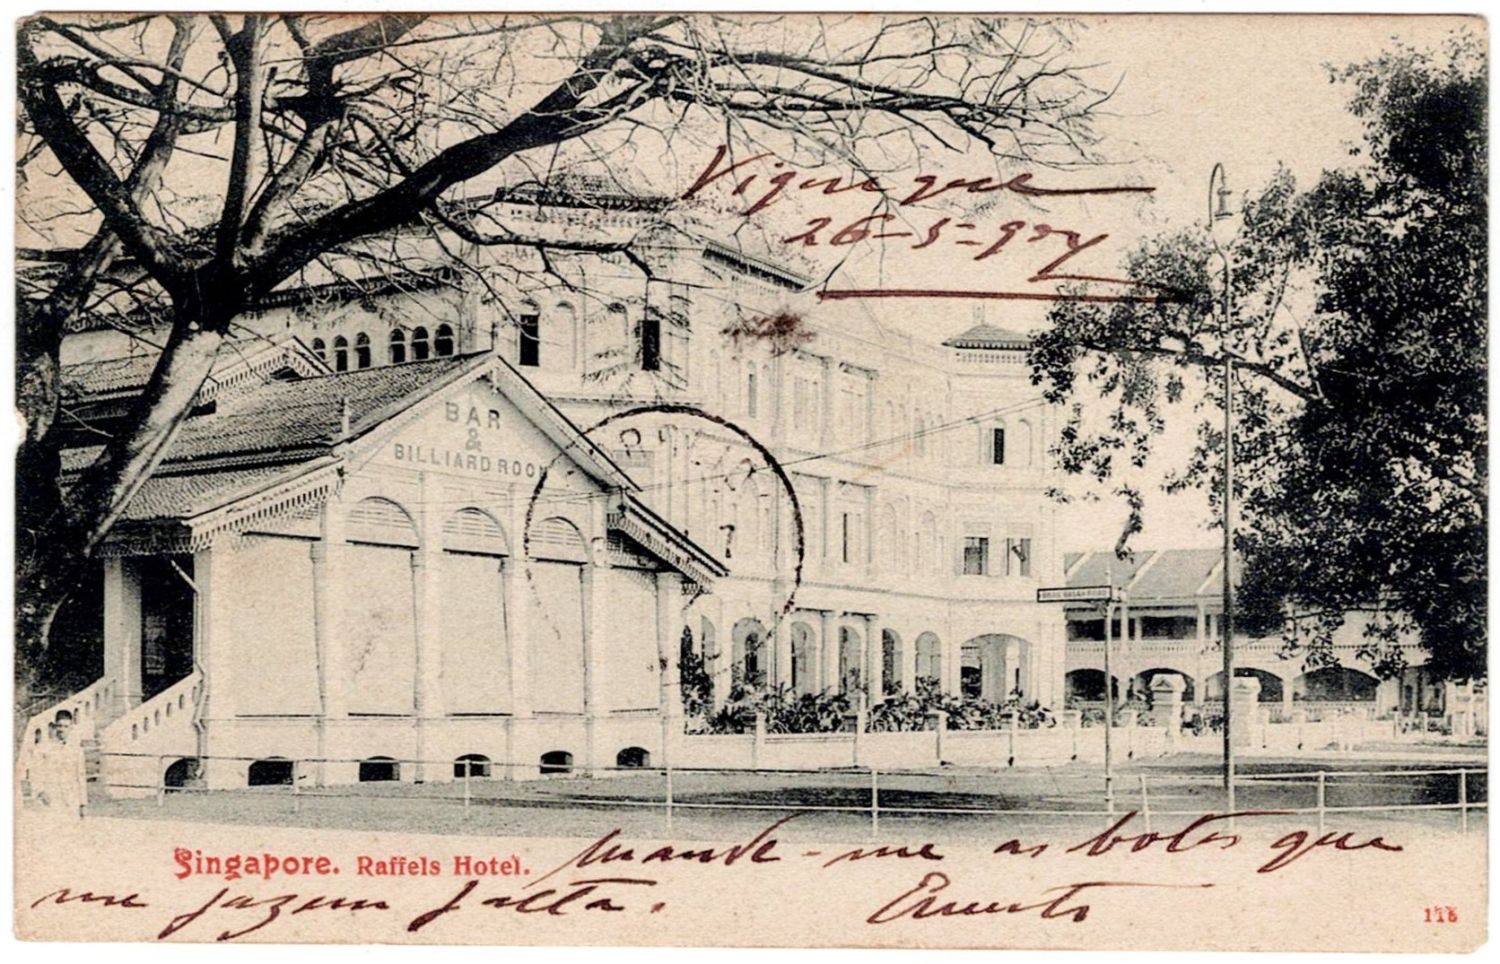 Viqueque
26-5-907
BAR
&
BILLIARD ROOM
BRAS BASAH ROAD
Singapore. Raffels Hotel.
Mande-me as botas que
me fazem falta.
Ernesto
118